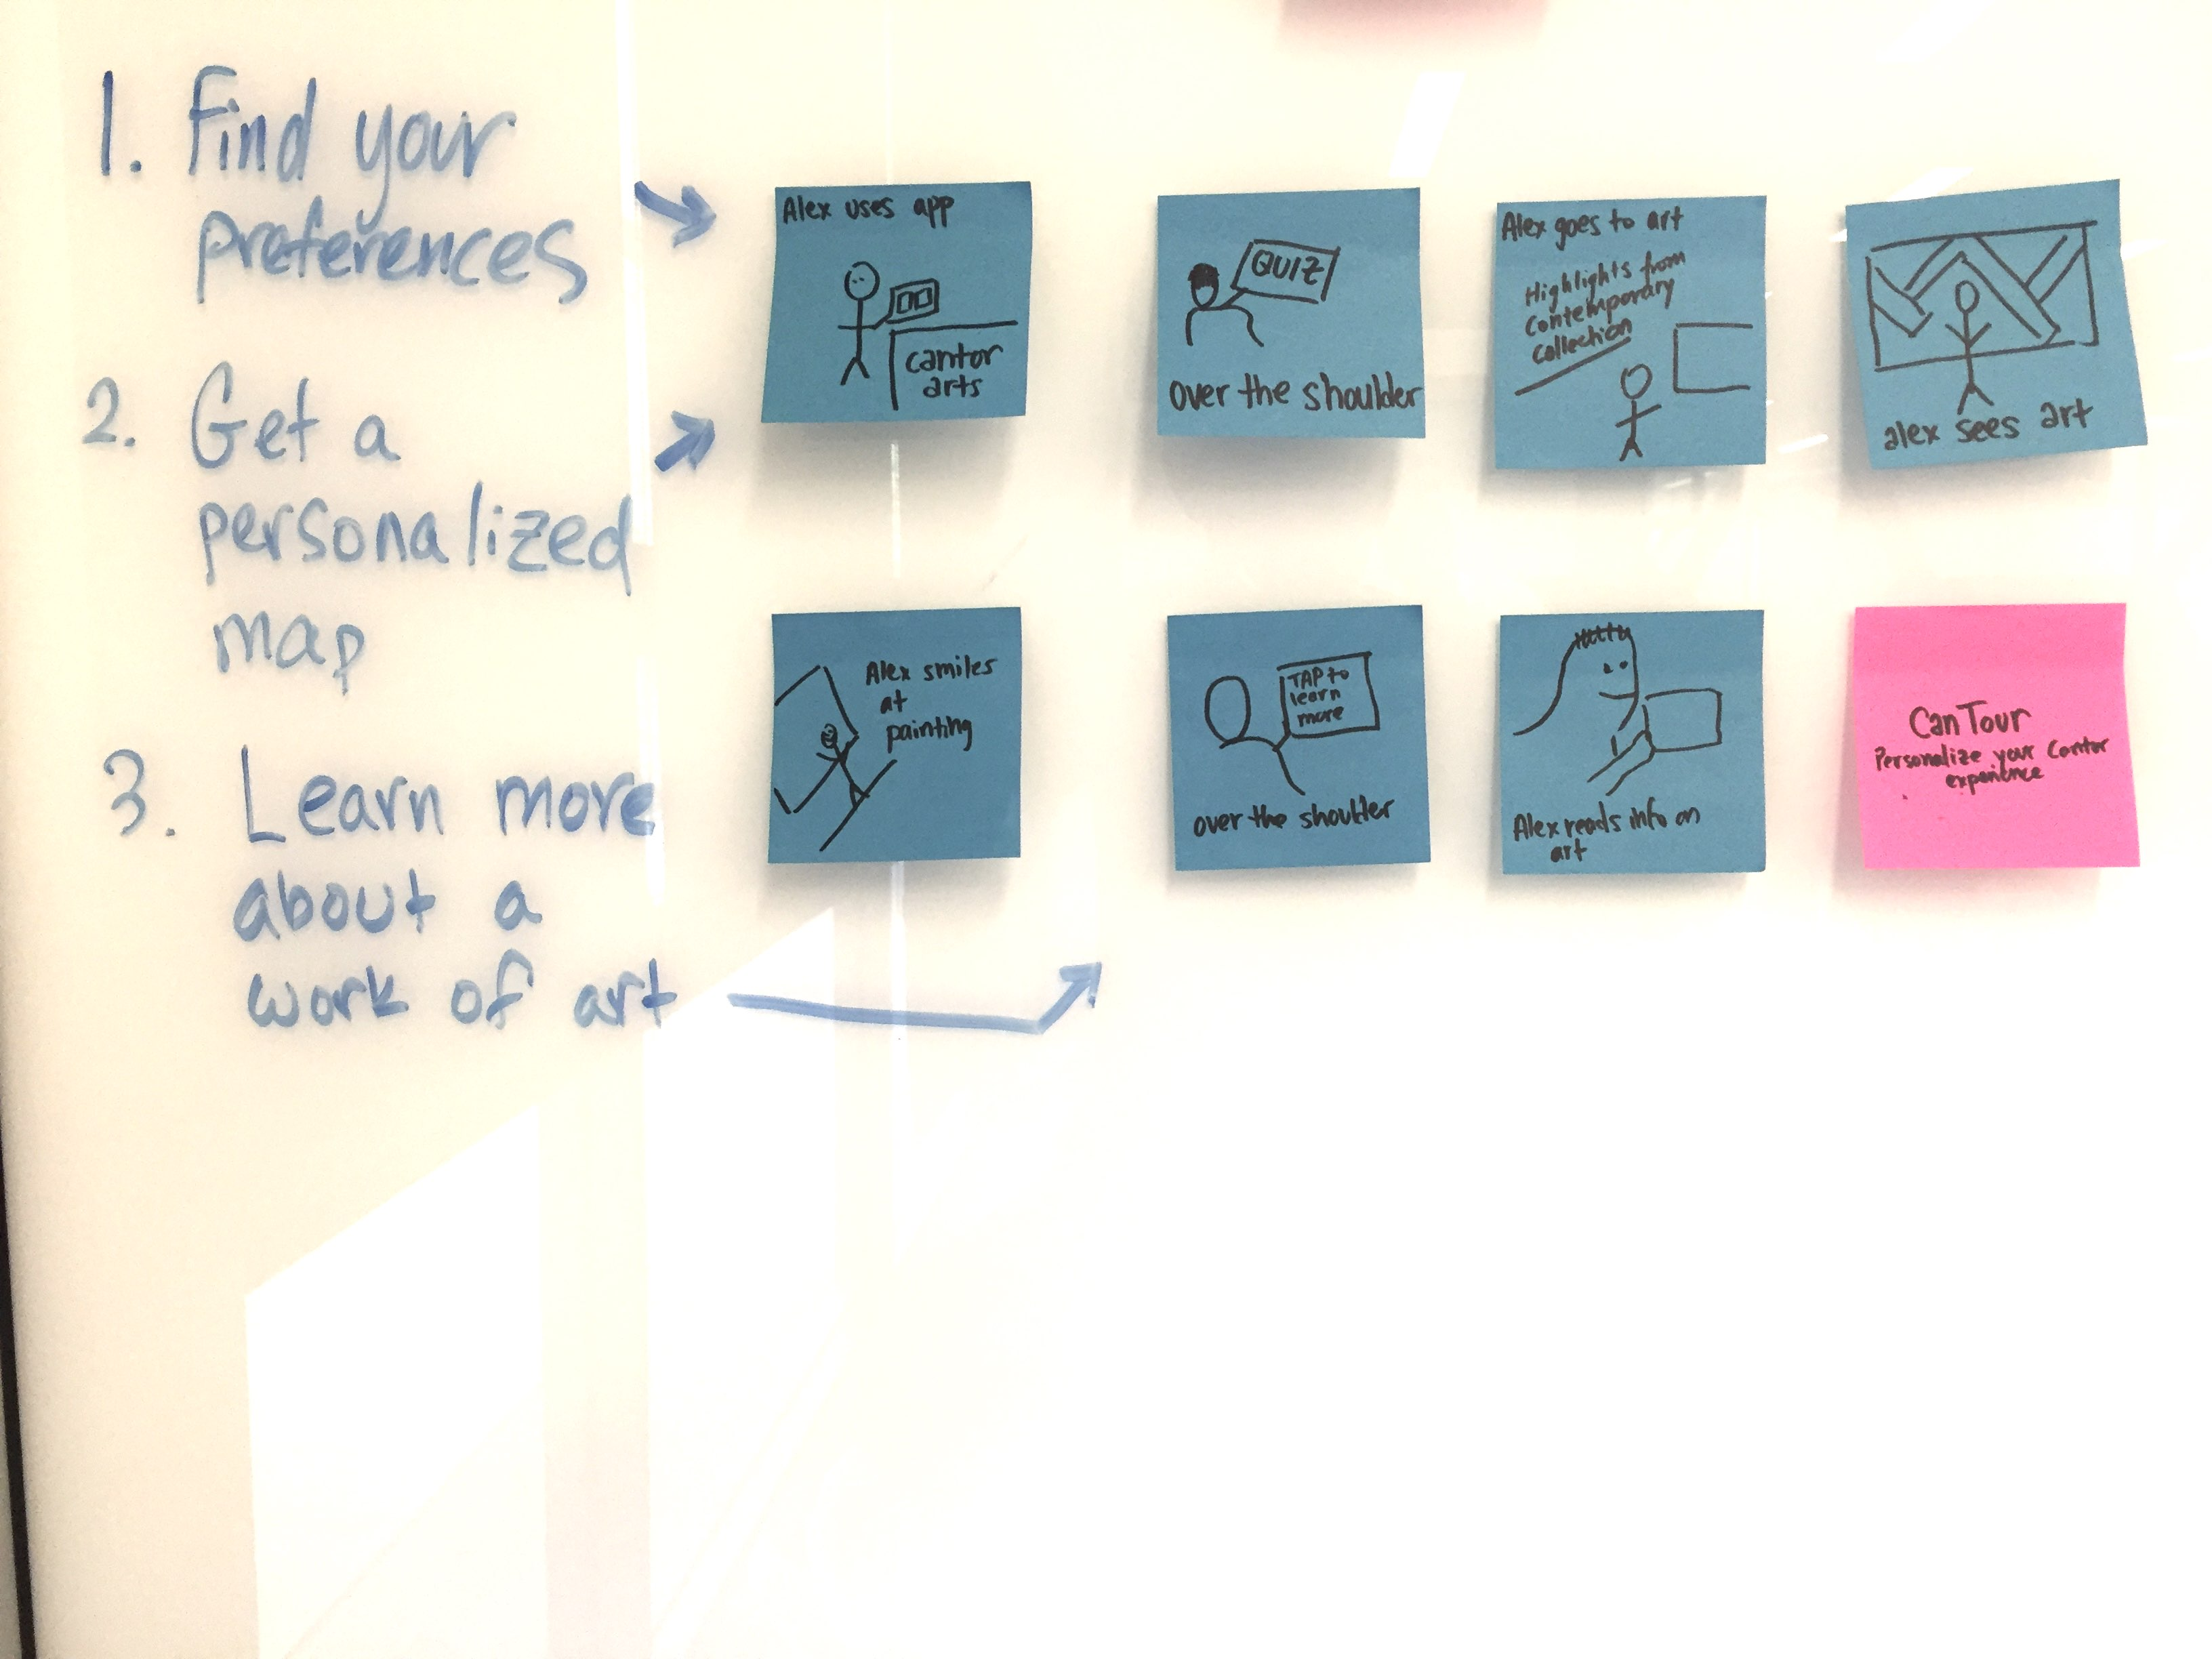 1. Find your
preferences
2. Get a
personalized
map
3. Learn more
about a
work of art
Alex uses app
cantor
arts
QUIZ
over the shoulder
Alex goes to art
Highlights from
Contemporary
Collection
alex sees art
Alex smiles
at
painting
TAP to
learn
more
over the shoulder
Alex reads info on
art
CanTour
Personalize your Cantor
experience